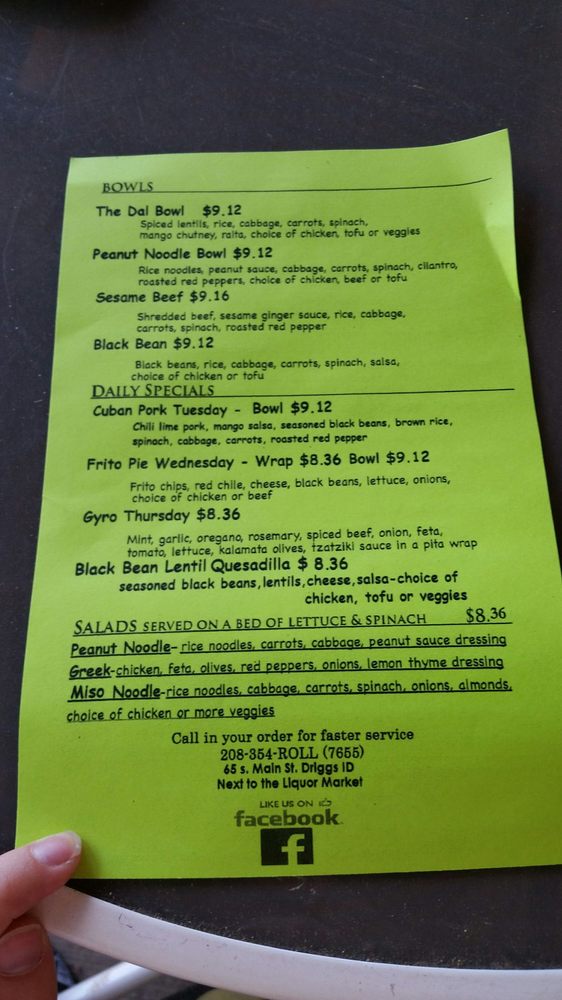 BOWLS
The Dal Bowl $9.12
Spiced lentils, rice, cabbage, carrots, spinach,
mango chutney, raita, choice of chicken, tofu or veggies
Peanut Noodle Bowl $9.12
Rice noodles, peanut sauce, cabbage, carrots, spinach, cilantro,
roasted red peppers, choice of chicken, beef or tofu
Sesame Beef $9.16
Shredded beef, sesame ginger sauce, rice, cabbage,
carrots, spinach, roasted red pepper
Black Bean $9.12
Black beans, rice, cabbage, carrots, spinach, salsa,
choice of chicken or tofu
DAILY SPECIALS
Cuban Pork Tuesday - Bowl $9.12
Chili lime pork, mango salsa, seasoned black beans, brown rice,
spinach, cabbage, carrots, roasted red pepper
Frito Pie Wednesday - Wrap $8.36 Bowl $9.12
Frito chips, red chile, cheese, black beans, lettuce, onions,
choice of chicken or beef
Gyro Thursday $8.36
Mint, garlic, oregano, rosemary, spiced beef, onion, feta,
tomato, lettuce, kalamata olives, tzatziki sauce in a pita wrap
Black Bean Lentil Quesadilla $ 8.36
seasoned black beans,lentils,cheese,salsa-choice of
chicken, tofu or veggies
SALADS SERVED ON A BED OF LETTUCE & SPINACH $8.36
Peanut Noodle- rice noodles, carrots, cabbage, peanut sauce dressing
Greek-chicken, feta, olives, red peppers, onions, lemon thyme dressing
Miso Noodle-rice noodles, cabbage, carrots, spinach, onions, almonds,
choice of chicken or more veggies
Call in your order for faster service
208-354-ROLL (7655)
65 s. Main St. Driggs ID
Next to the Liquor Market
LIKE US ON
facebook
f